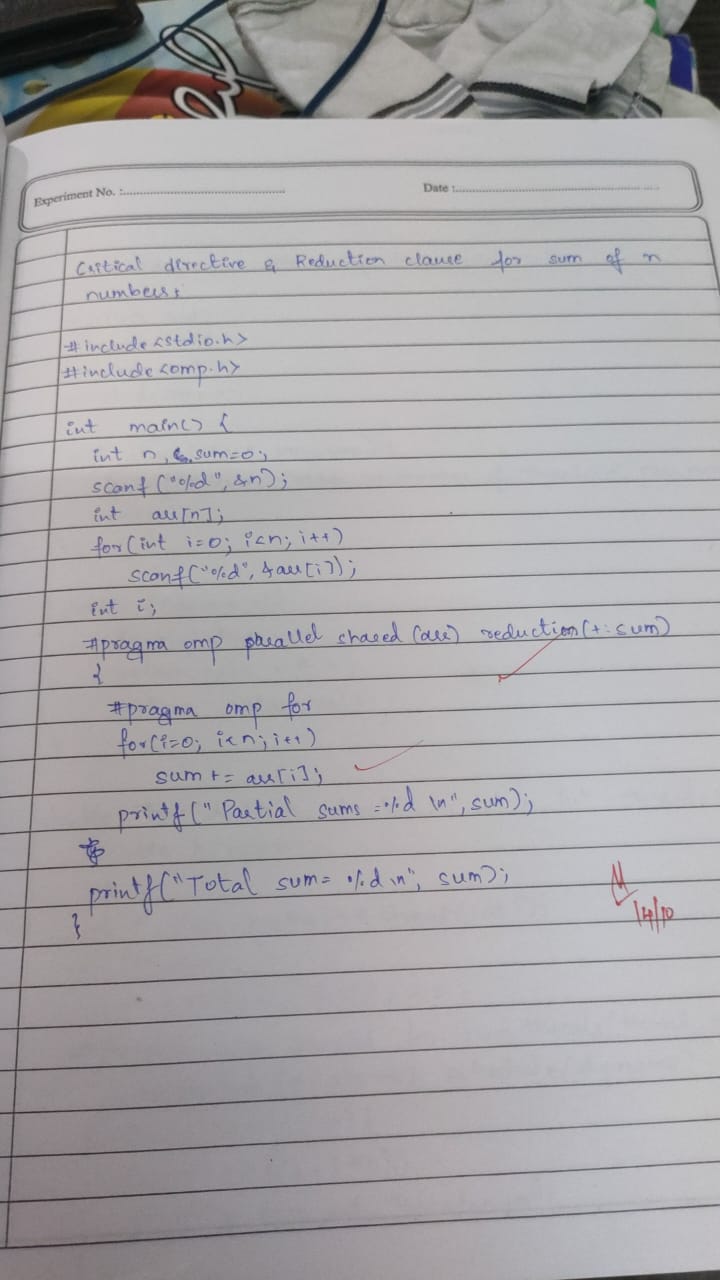 Experiment No. :
Date :
Critical directive & Reduction clause for sum of n
numbers:
#include <stdio.h>
#include <omp.h>
int main() {
int n, sum=0;
scanf("%d", &n);
int arr[n];
for(int i=0; i<n; i++)
scanf("%d", &arr[i]);
int i;
#pragma omp parallel shared (arr) reduction(+: sum)
{
#pragma omp for
for(i=0; i<n; i++)
sum += arr[i];
printf("Partial sums =%d \n", sum);
}
printf("Total sum= %d \n", sum);
}
14/10